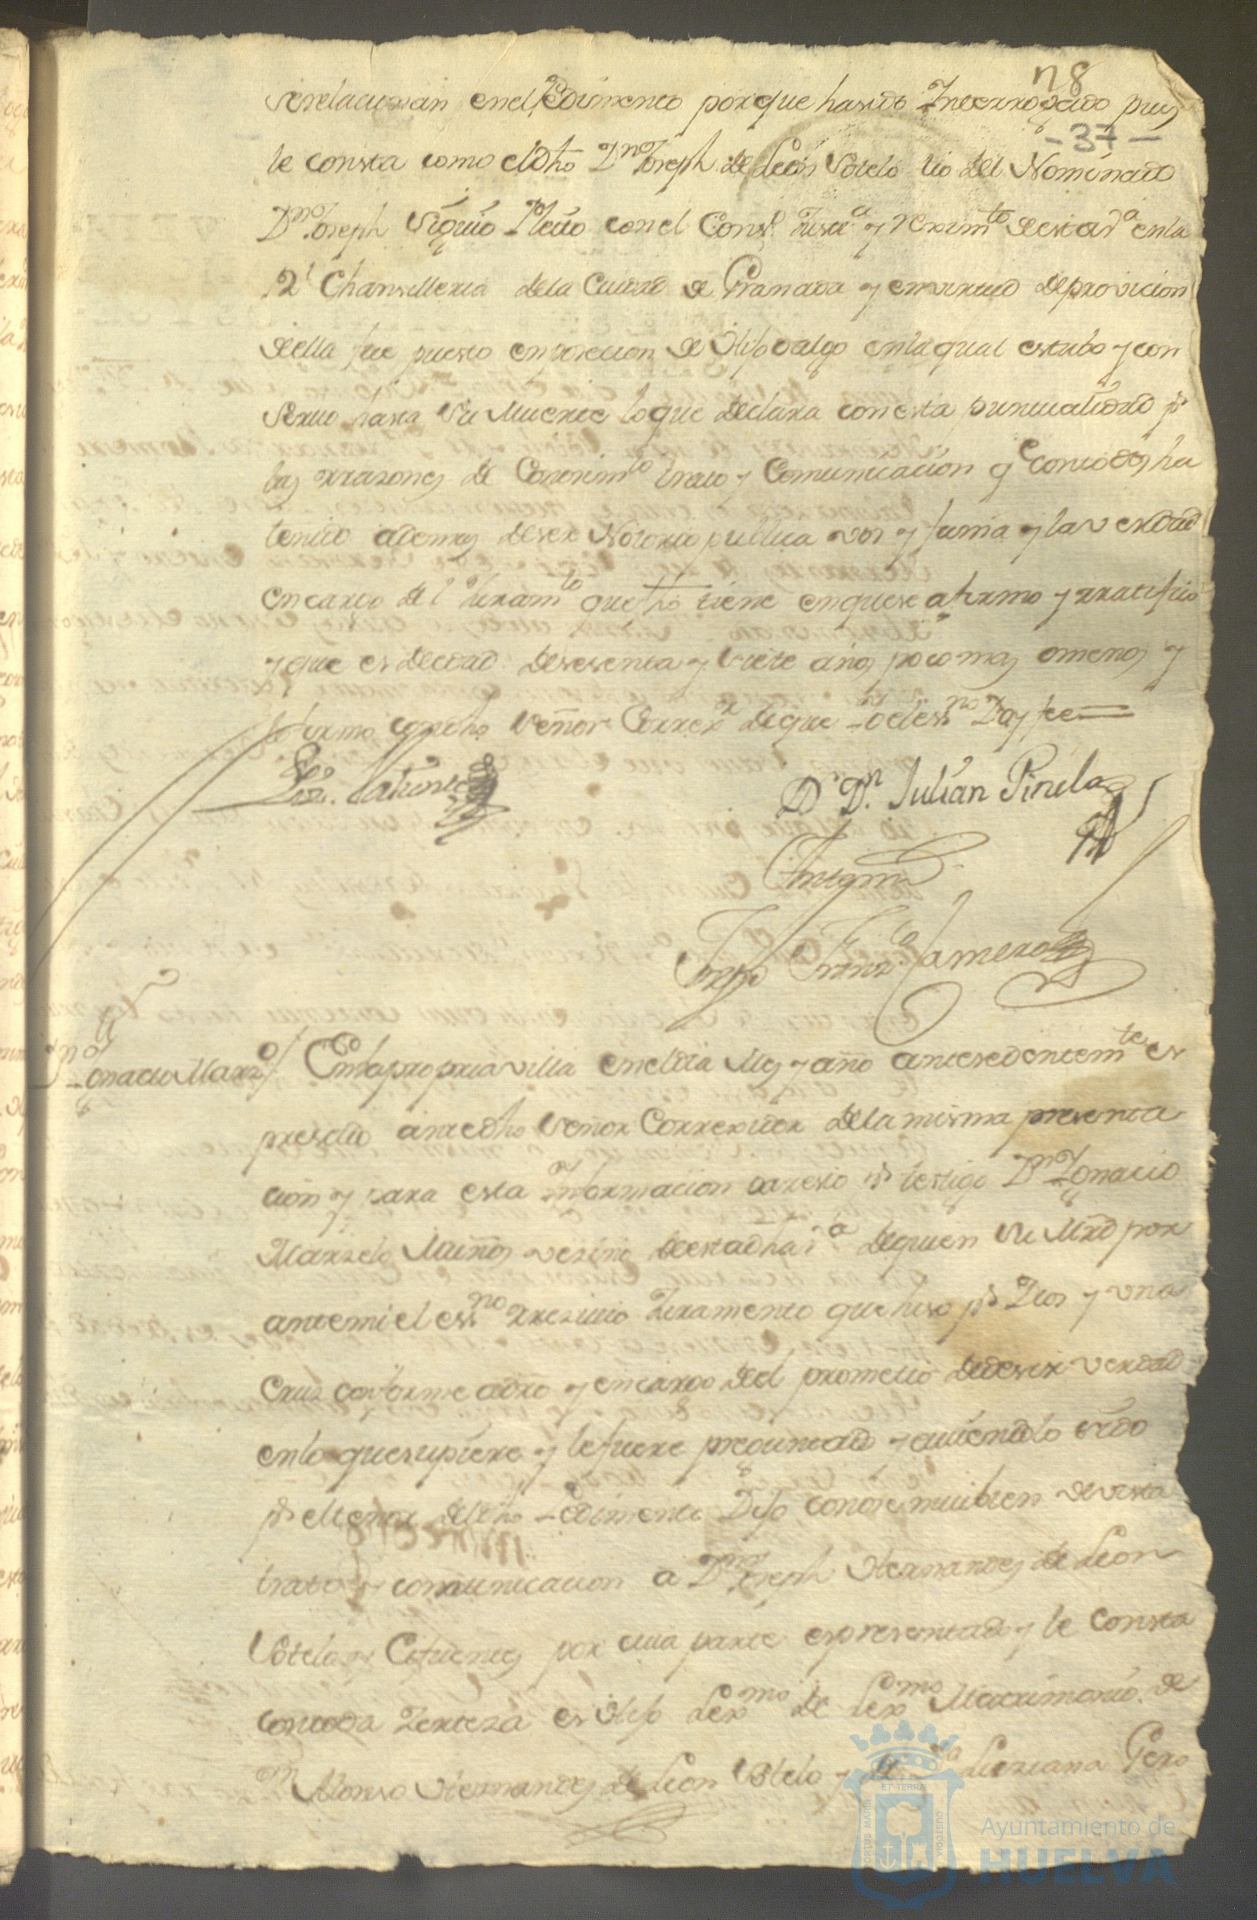 n8
-37-
se relacionan en el Pedimento porque ha sido Interrogado pues
le consta como el dho Dn Joseph de León Sotelo tio del Nominado
Dn Joseph siguio Pleito con el Consº Justª y reximto de esta vª en la
Rl Chansilleria de la Ciudad de Granada y en virtud de provicion
de ella fue puesto en posecion de Hijodalgo en la qual estubo y con
servo hasta su Muerte lo que declara con esta puntualidad pr
las rrazones de Conosimto trato y Comunicacion qe con todos ha
tenido ademas de ser Notorio publica vos y fama y la verdad
en cargo del Juramto que fho tiene en que se afirmo y rratifico
y que es de edad de sesenta y siete años poco mas o menos y
lo firmo con dho señor Correxr de que Yo el essno Doy fee
Dr Dn Julián Pinela
Antemi
Joseph Franco Camero
Dn Ignacio Marzo
En la propria villa en el dia Mes y año antesedentemte es
presado ante dho Señor Correxidor de la misma presenta
cion y para esta Informacion paresio pr testigo Dn Ignacio
Marzelo Muiños vezino de esta dha vª de quien su Mrd por
ante mi el essno rresivio Juramento que hiso pr Dios y una
Cruz conforme a dro y en cargo del prometio de desir verdad
en lo que supiere y le fuere preguntado y auiendolo sido
pr el tenor del dho Pedimento Dijo conose mui bien de vista
trato y comunicacion a Dn Joseph Hernandes de Leon
Sotelo y Cifuentes por cuia parte es presentado y le consta
con toda Zerteza es Hijo Lexmo de Lexmo Matrimonio de
Dn Alonso Hernandes de Leon Sotelo y Dª Luziana Pero
ET TERRA
Ayuntamiento de
HUELVA